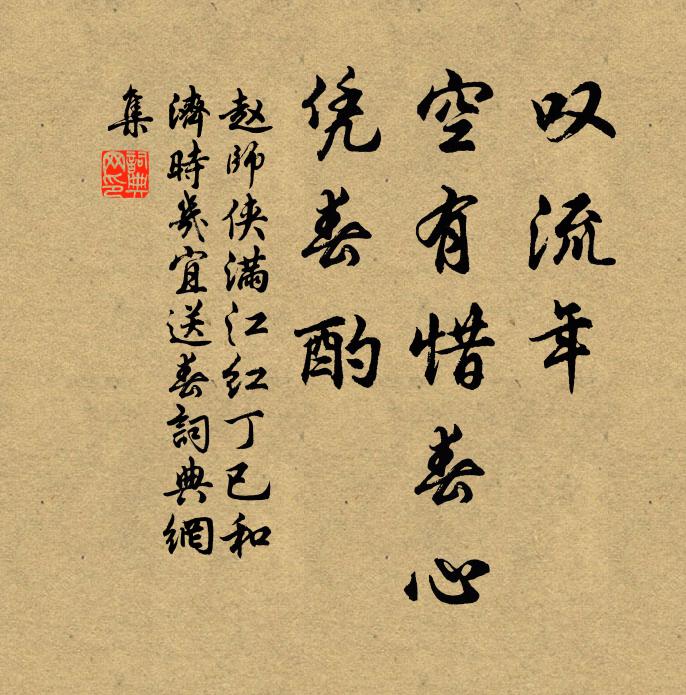 叹流年
空有惜春心
凭春酌
赵師侠满江红丁巳和
濟時几宜送春詞典網
集
詞典网印